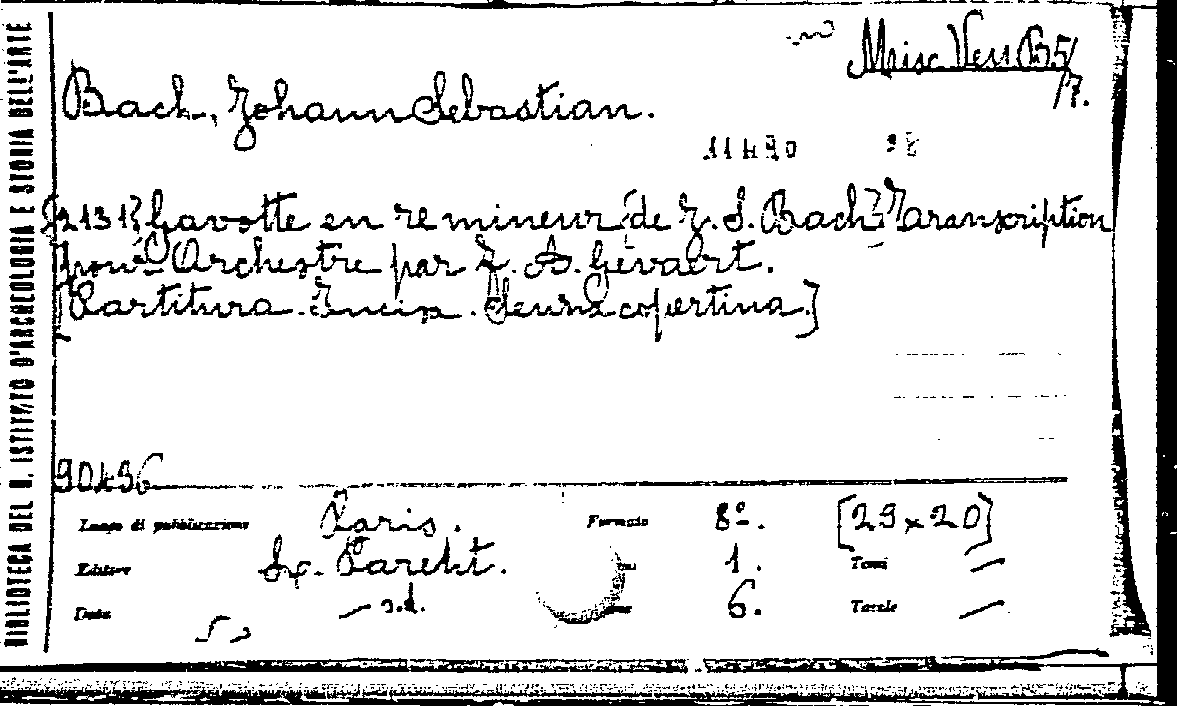 Misc. Vess. B5/
/7.
Bach, Johann Sebastian.
[2131] Gavotte en re mineur [de J. S. Bach] Transcription
pour Orchestre par F. A. Gevaert.
[Partitura. Incis. Senza copertina.]
90496
Luogo di pubblicazione Paris. Formato 8º. [29 x 20]
Editore 1. Tomi —
Data — s.d. 6. Tavole —
BIBLIOTECA DEL R. ISTITUTO D'ARCHEOLOGIA E STORIA DELL'ARTE